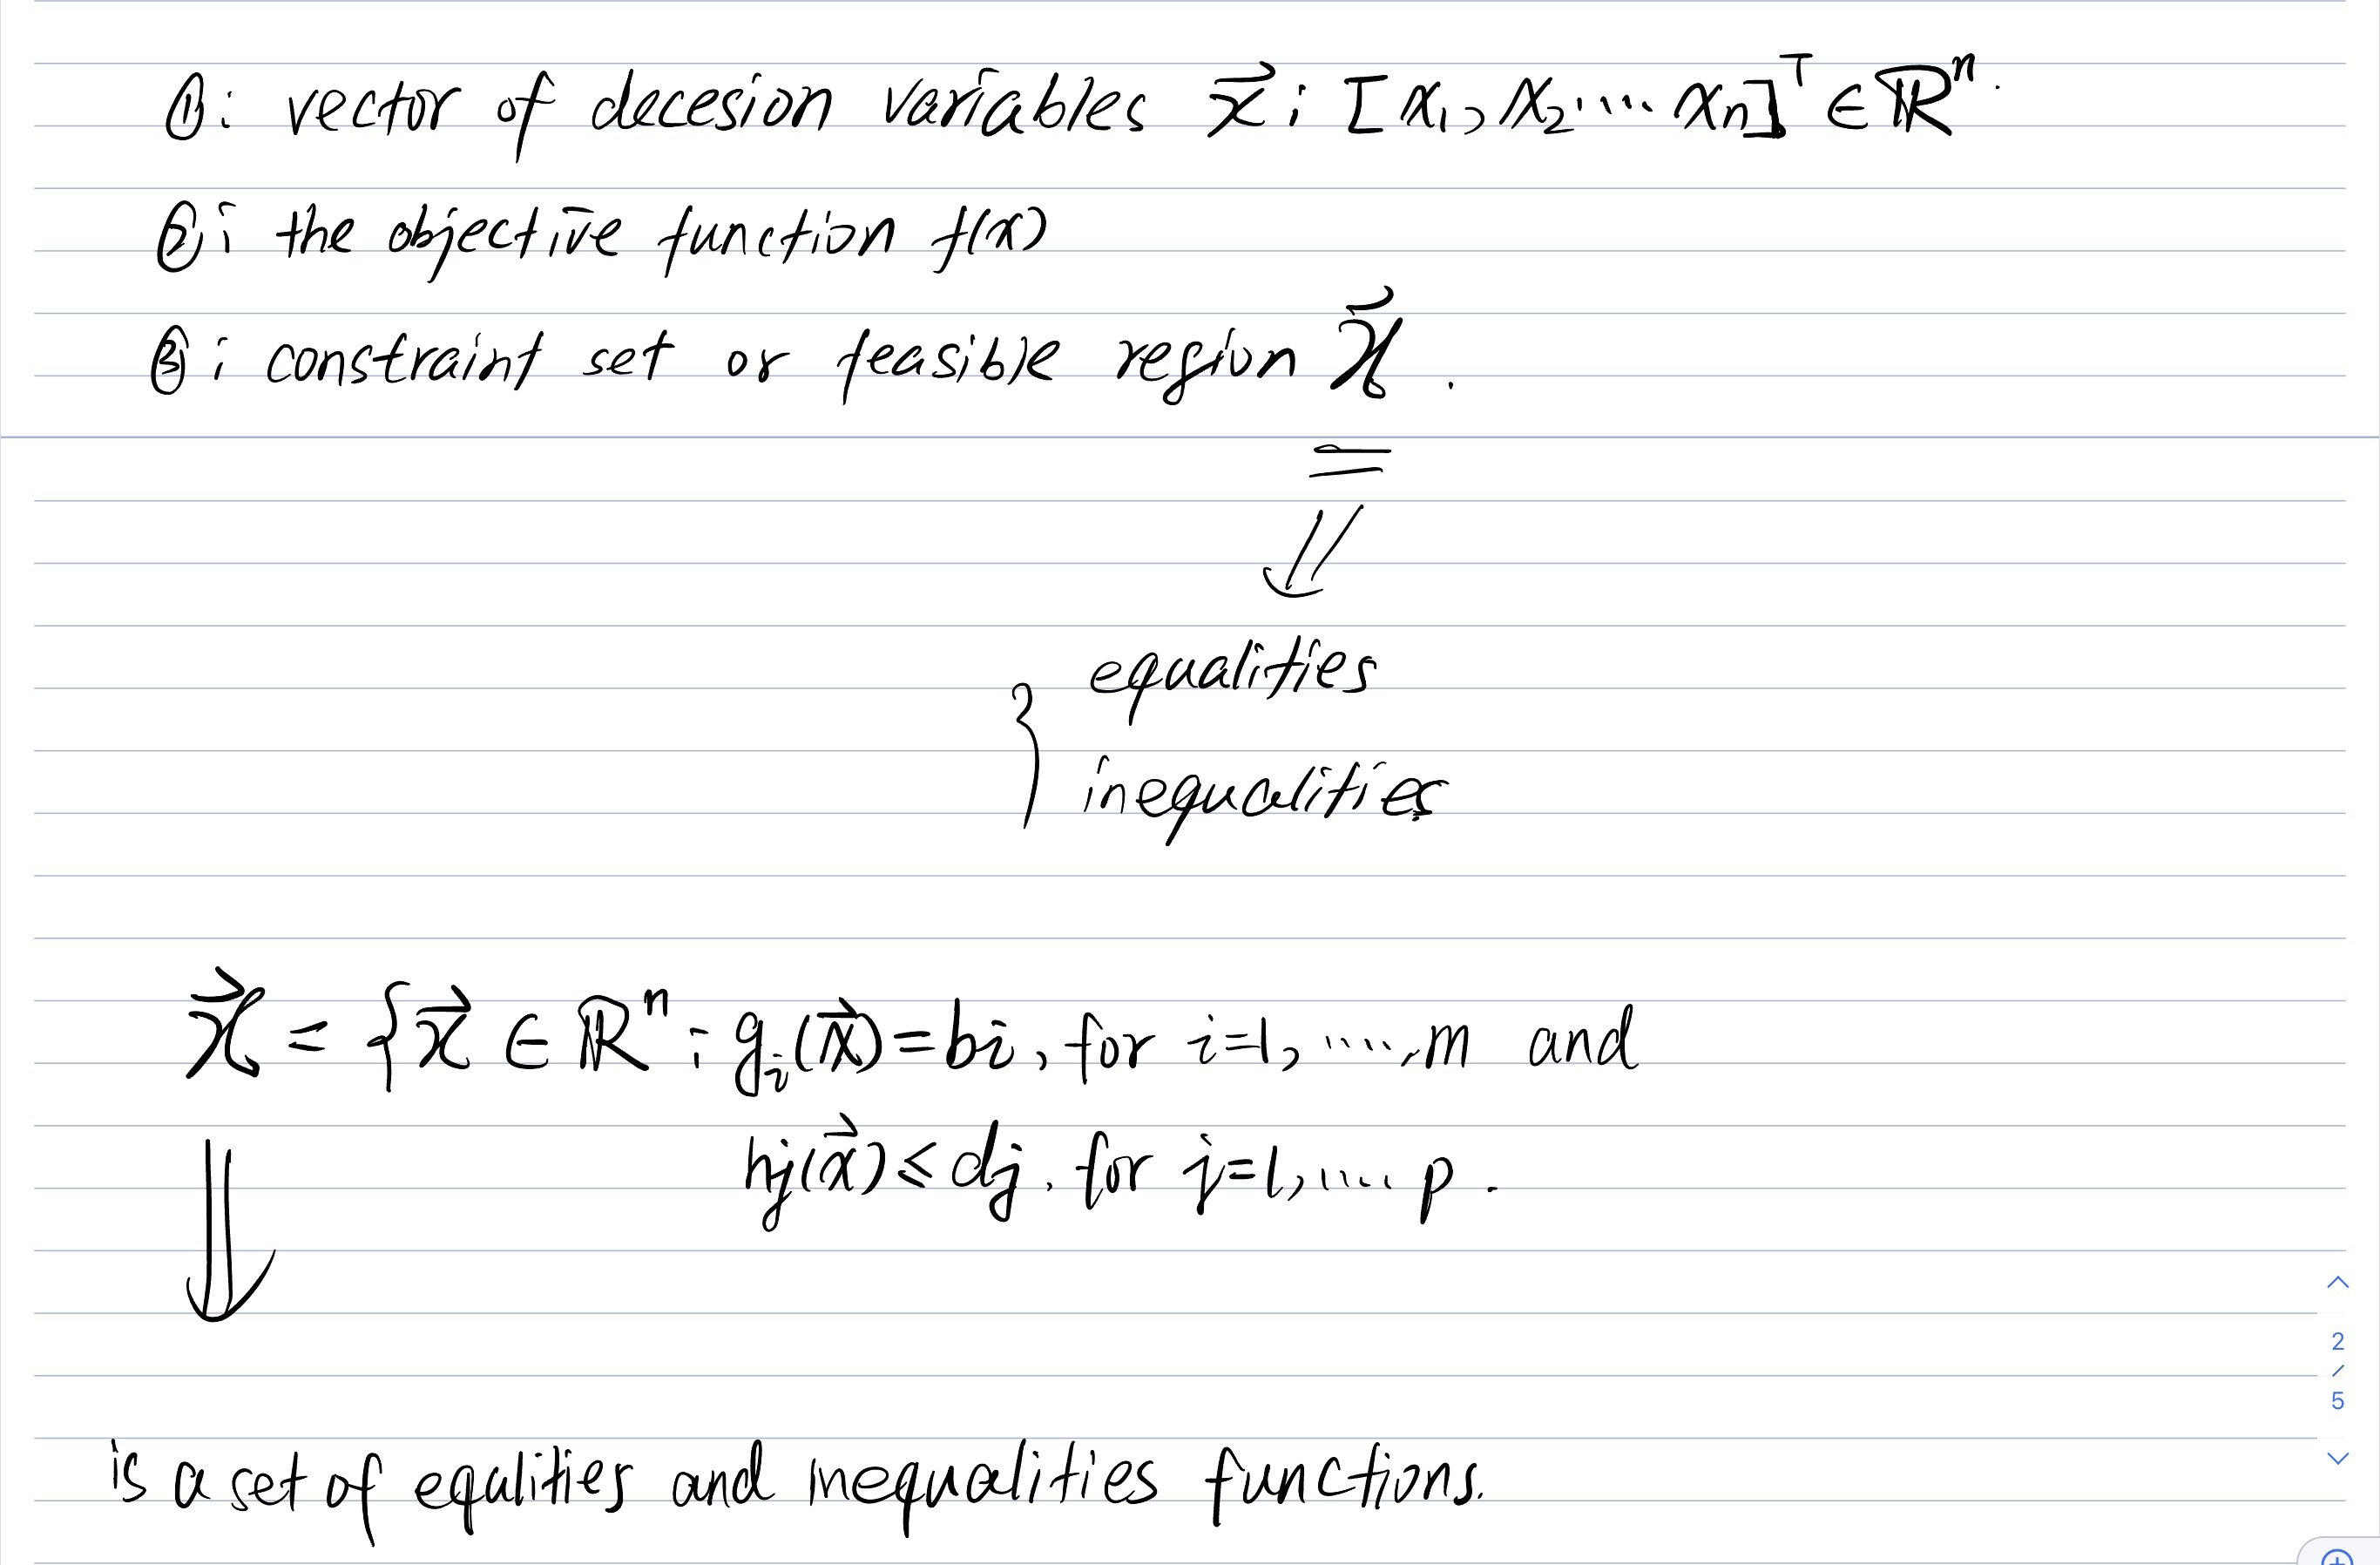 ①: vector of decesion variables x⃗: [x₁, x₂, ... xₙ]ᵀ ∈ ℝⁿ.
②: the objective function f(x)
③: constraint set or feasible region x⃗.
equalities
inequalities
x⃗ = {x⃗ ∈ ℝⁿ: gᵢ(x⃗) = bᵢ, for i=1, ...., m and
hⱼ(x⃗) < dⱼ, for j=1, .... p.
is a set of eqalities and inequalities functions.
2
/
5